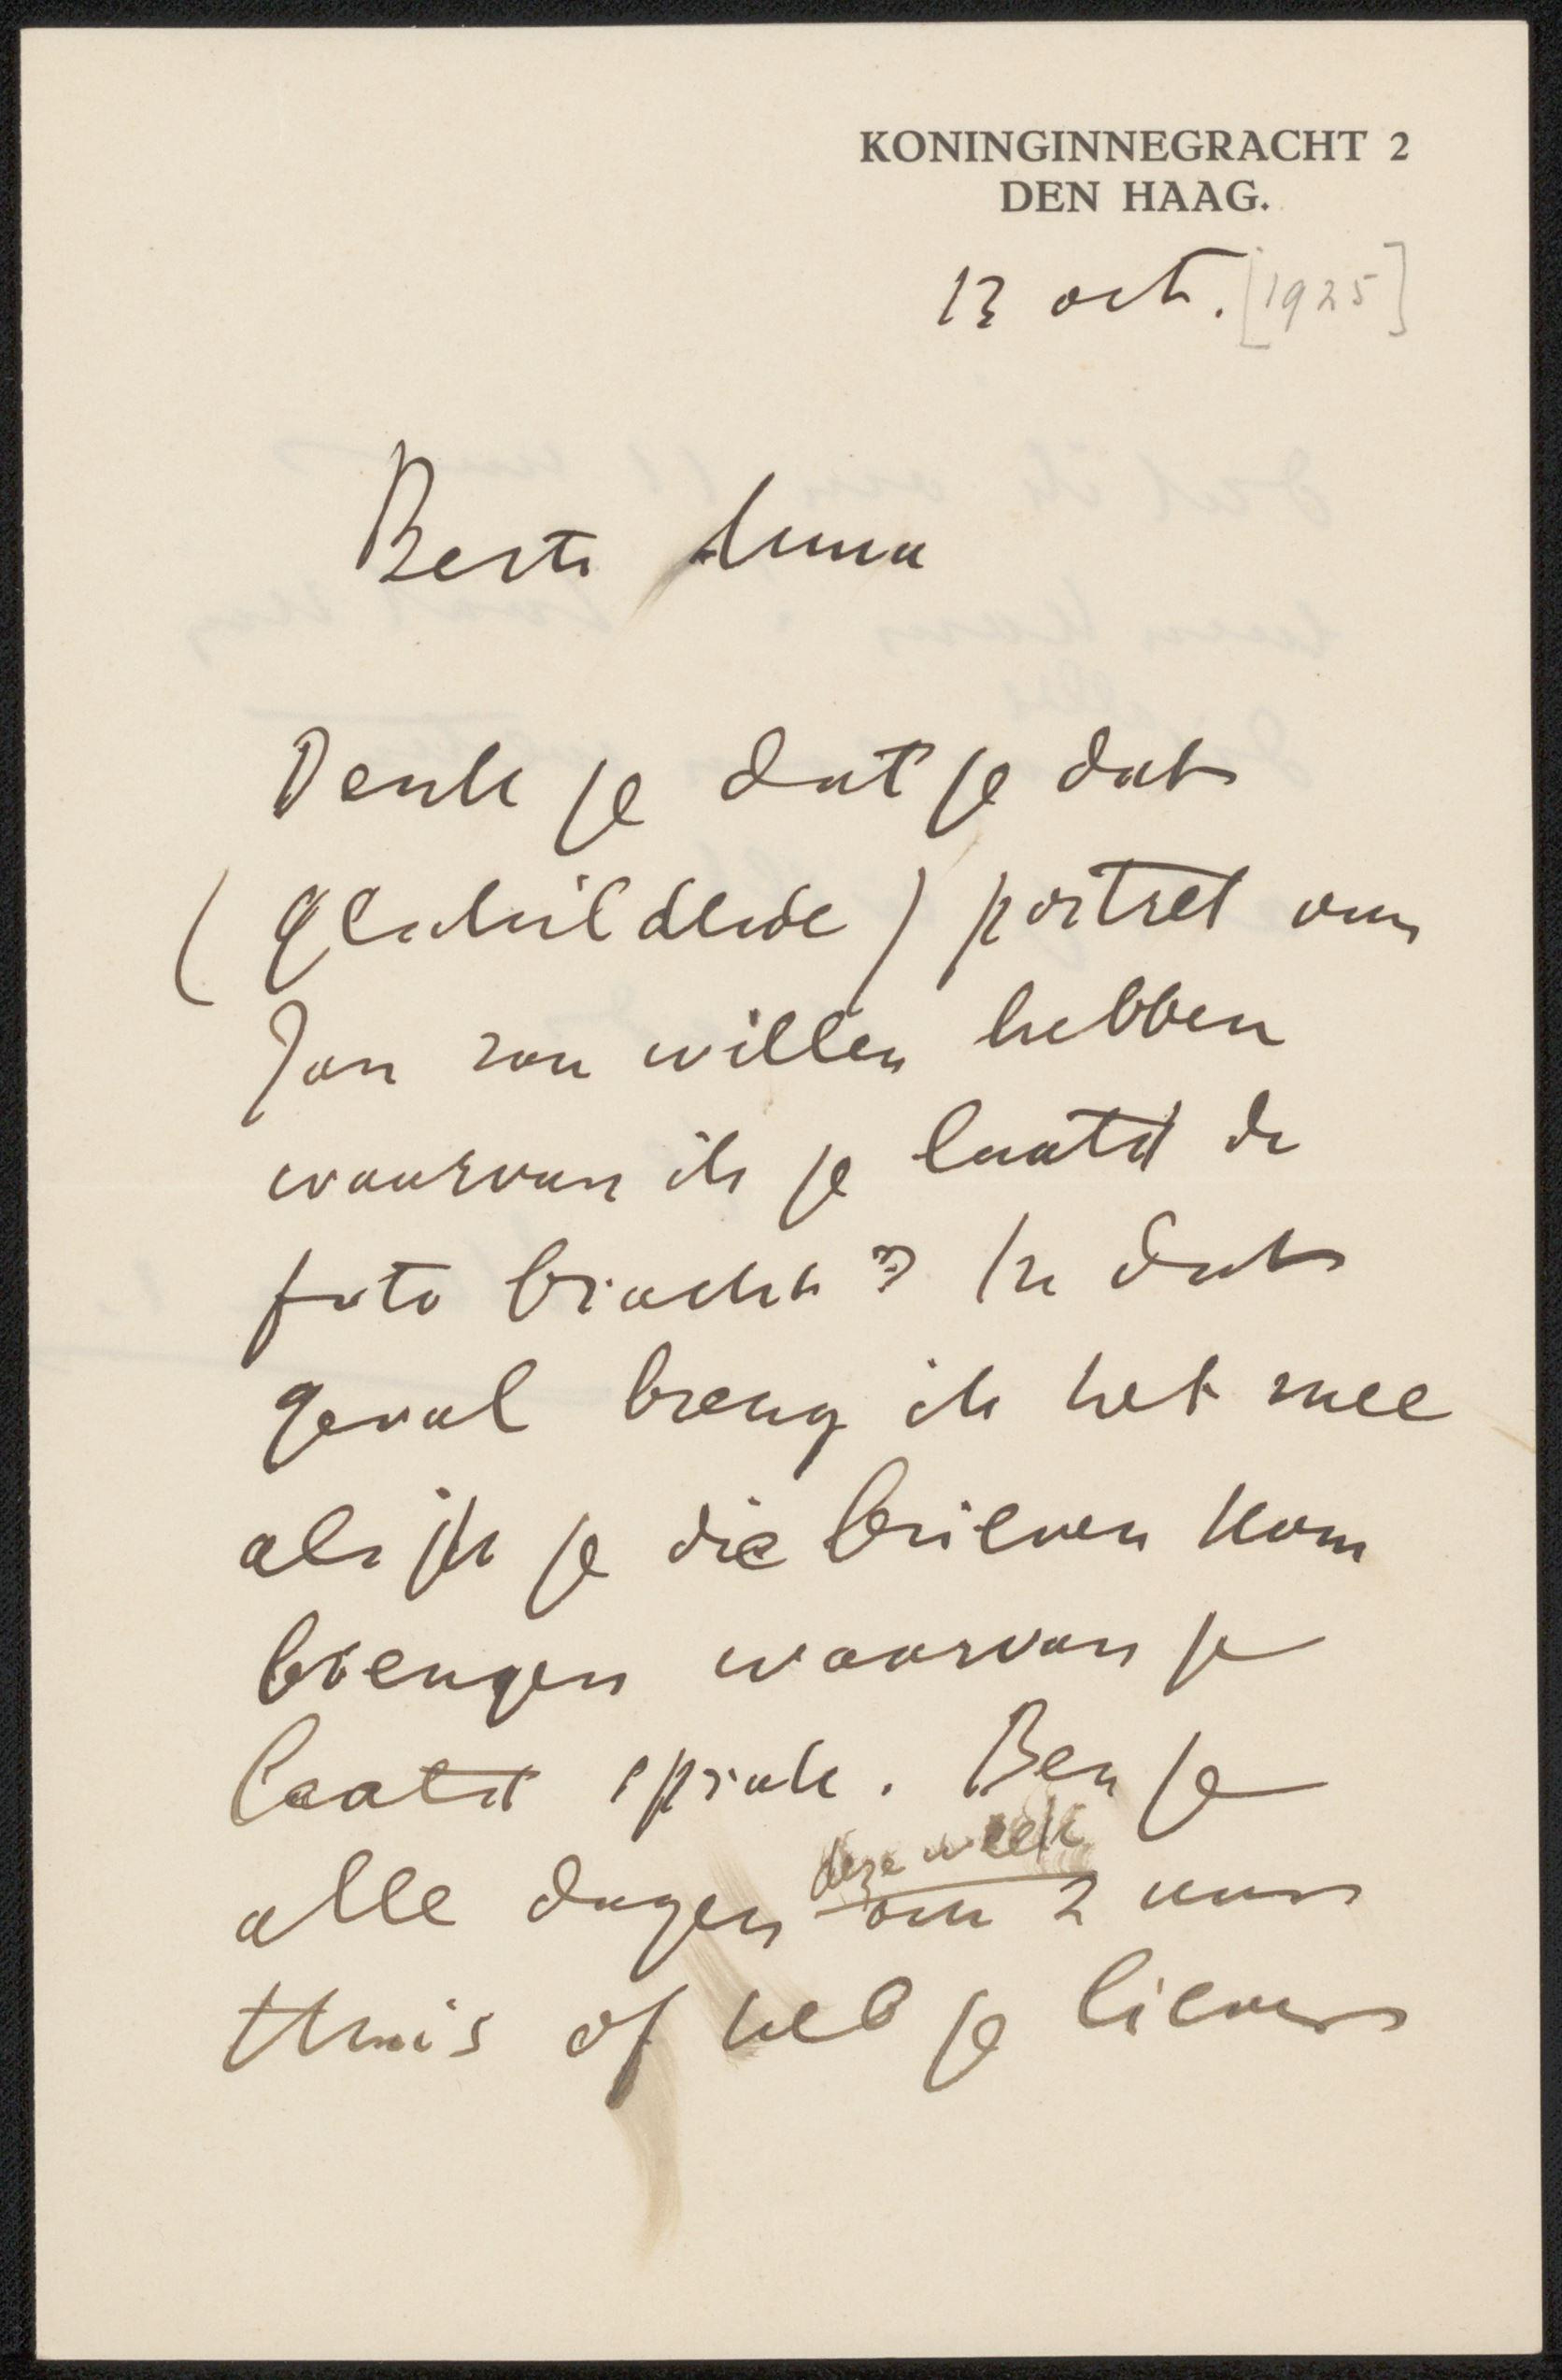 KONINGINNEGRACHT 2
DEN HAAG.
13 oct. [1925]
Beste Anna
Denk je dat je dat
(geschilderde) portret van
Jan zou willen hebben
waarvan ik je laatst de
foto bracht? In dat
geval breng ik het mee
als ik je die brieven kom
brengen waarvan je
laatst sprak. Ben je
deze week
alle dagen om 2 uur
thuis of heb je liever